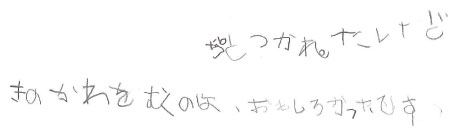 つかれたけど
きのかわをむくのは、おもしろかったです。